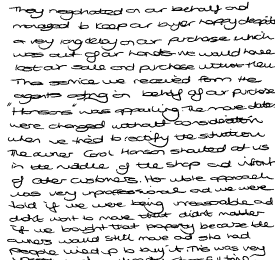 They negotiated on our behalf and
managed to keep our buyer happy despite
a very long delay on our purchase which
was out of our hands we would have
lost our sale and purchase without them
The service we received from the
agents acting on behalf of our purchase
"Hansons" was appauling The move dates
were changed without consideration
when we tried to rectify the situation
The owner Carol Hanson shouted at us
in the middle of the shop and infront
of other customers. Her whole approach
was very unprofessional and we were
told if we were being unreasonable and
didnt want to move that didnt matter
if we bought that property because the
owners would still move as she had
people lined up to buy it. This was very